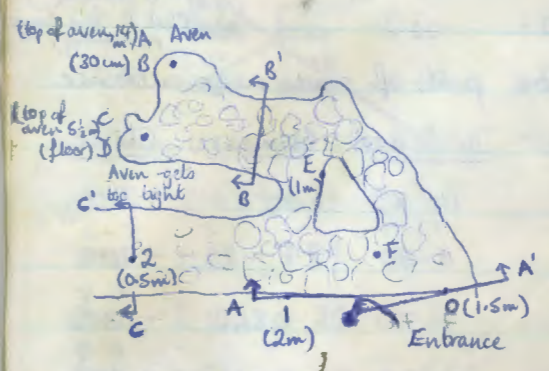 (top of aven, 14m) A Aven
(30cm) B
B'
(top of aven 5½m) C
(floor) D
Aven gets too tight
E
(1m)
B
C'
2
(0.5m)
C
F
A'
A
1
(2m)
0 (1.5m)
Entrance